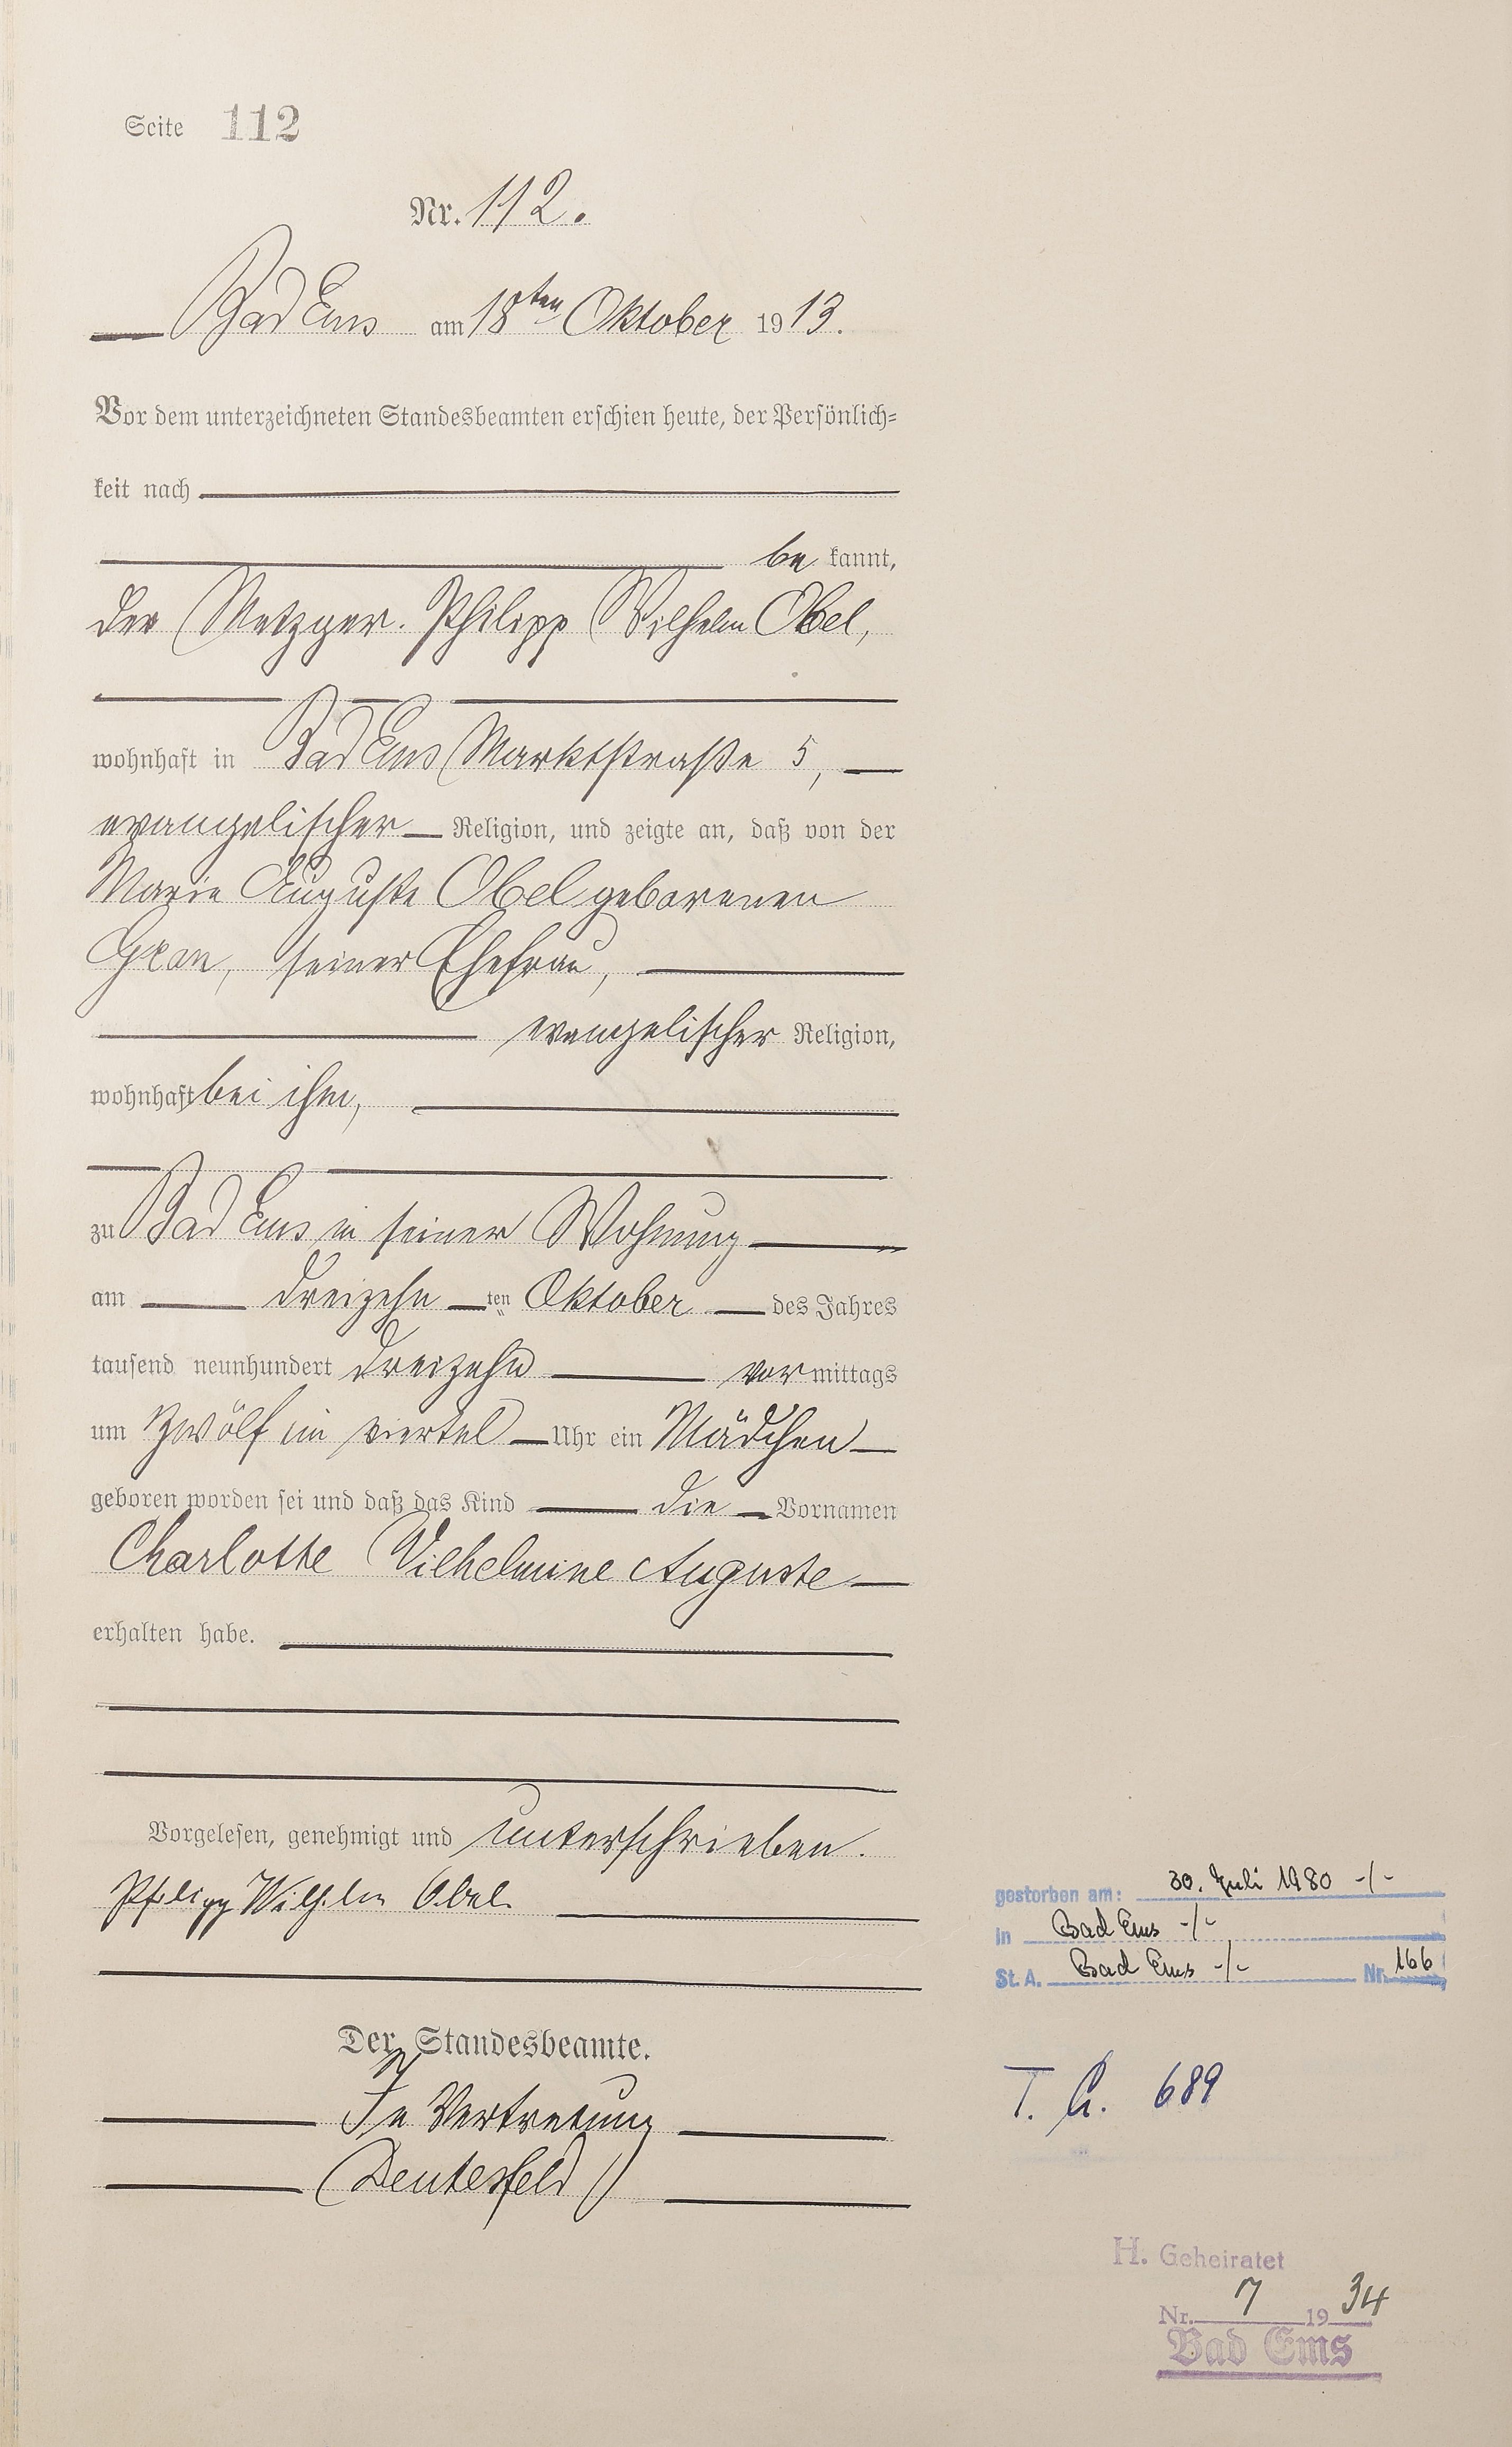 Seite 112
Nr. 112.
Bad Ems am 18ten Oktober 1913.
Vor dem unterzeichneten Standesbeamten erschien heute, der Persönlich=
keit nach
be kannt,
der Metzger Philipp Wilhelm Obel,
wohnhaft in Bad Ems Marktstraße 5,
evangelischer Religion, und zeigte an, daß von der
Marie Auguste Obel geborenen
seiner Ehefrau,
evangelischer Religion,
wohnhaft bei ihm,
zu Bad Ems in seiner Wohnung
am dreizehn ten Oktober des Jahres
tausend neunhundert dreizehn vor mittags
um zwölf ein viertel Uhr ein Mädchen
geboren worden sei und daß das Kind die Vornamen
Charlotte Wilhelmine Auguste
erhalten habe.
Vorgelesen, genehmigt und unterschrieben.
Philipp Wilhelm Obel.
Der Standesbeamte.
In Vertretung
gestorben am: 30. Juli 1980 -/-
in Bad Ems -/-
St. A. Bad Ems -/- Nr. 166
T. A. 689
H. Geheiratet
Nr. 7 1934
Bad Ems